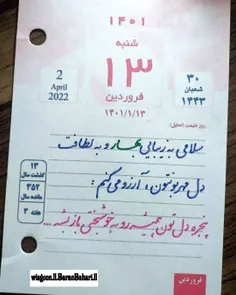 ۱۴۰۱
شنبه
2
April
2022
۱۳
فروردین
۱۴۰۱/۱/۱۳
۳۰
شعبان
۱۴۴۳
روز طبیعت (تعطیل)
سلامی به زیبایی بهار و به لطافت
دل مهربونتون، آرزو می کنم :
پنجره دل تون همیشه رو به خوشبختی باز بشه ...
۱۳
گذشت سال
۳۵۲
مانده سال
هفته ۳
فروردین
wisgoon.ll.BaranBahari.ll